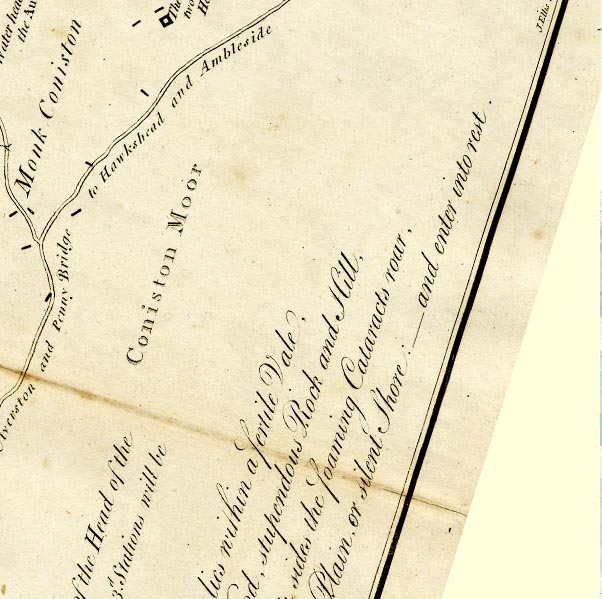 the
two
Monk Coniston
to Hawkshead and Ambleside
and Penny Bridge
Coniston Moor
of the Head of the
3.d Stations will be
lies within a fertile Vale,
stupendous Rock and Hill,
sides the foaming Cataracts roar,
Plain, or silent Shore; — and enter into rest.